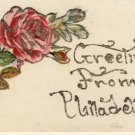 Greetin
From
Philadel